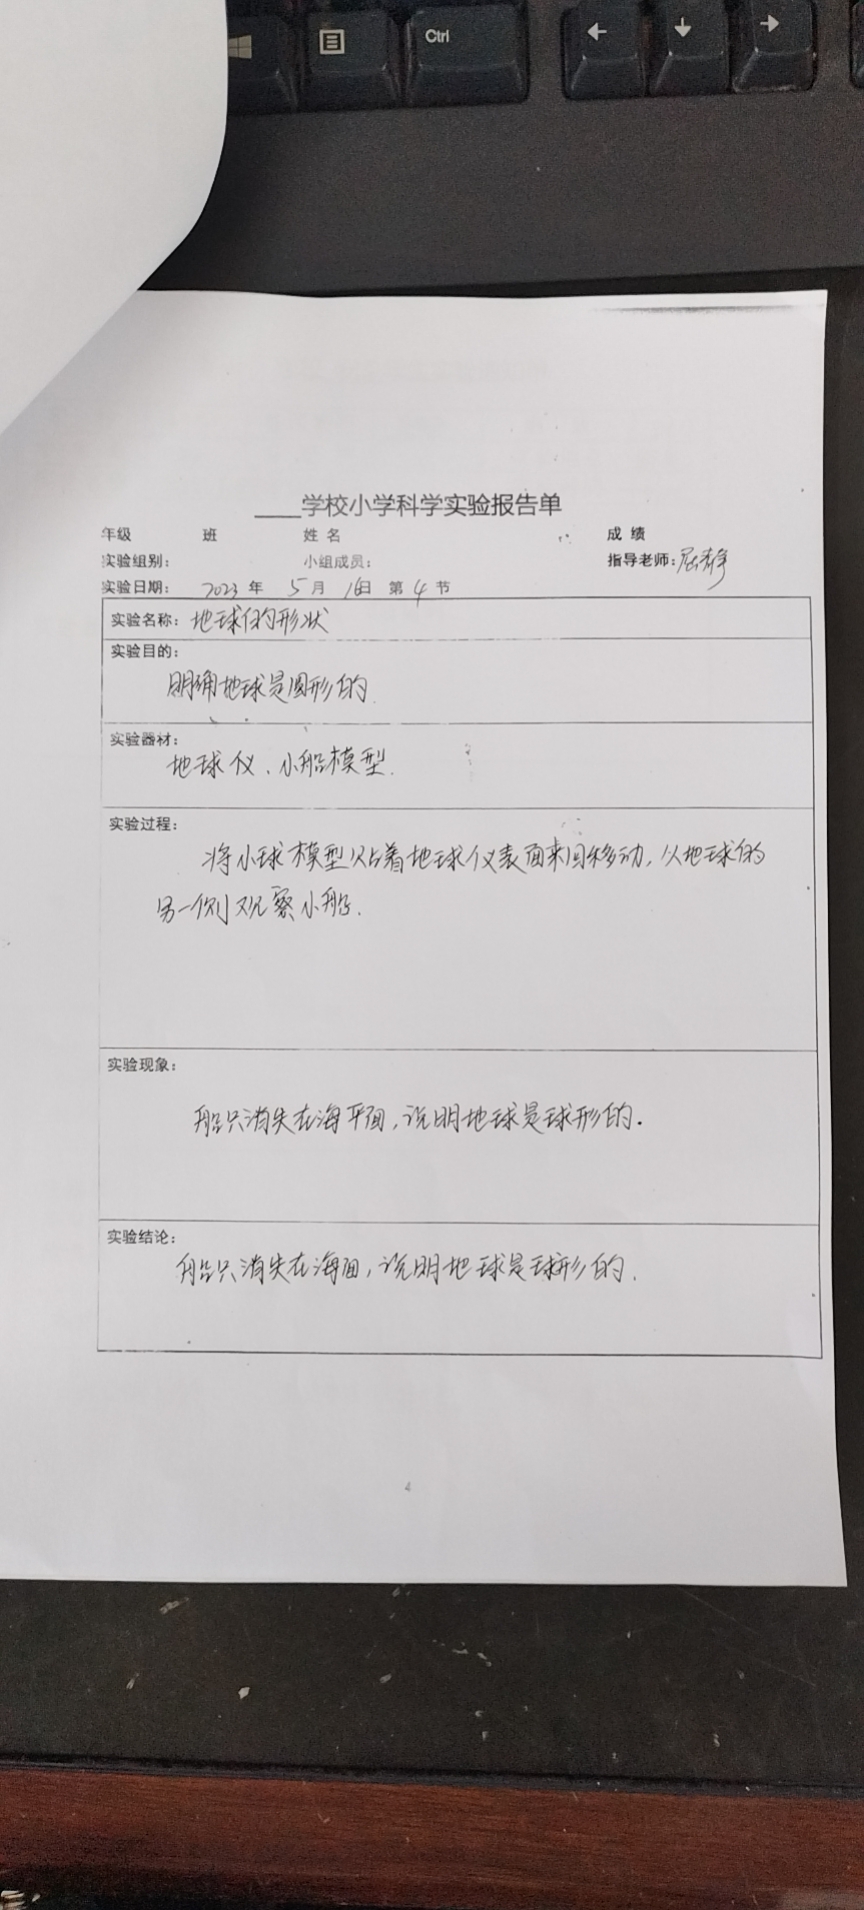 Ctrl
____学校小学科学实验报告单
年级 班 姓名 成绩
实验组别: 小组成员: 指导老师:屈静
实验日期: 2023 年 5 月 16日 第 4 节
实验名称: 地球的形状
实验目的:
明确地球是圆形的
实验器材:
地球仪、小船模型.
实验过程:
将小球模型贴着地球仪表面来回移动,从地球的
另一侧观察小船.
实验现象:
船只消失在海平面,说明地球是球形的.
实验结论:
船只消失在海面,说明地球是球形的.
4